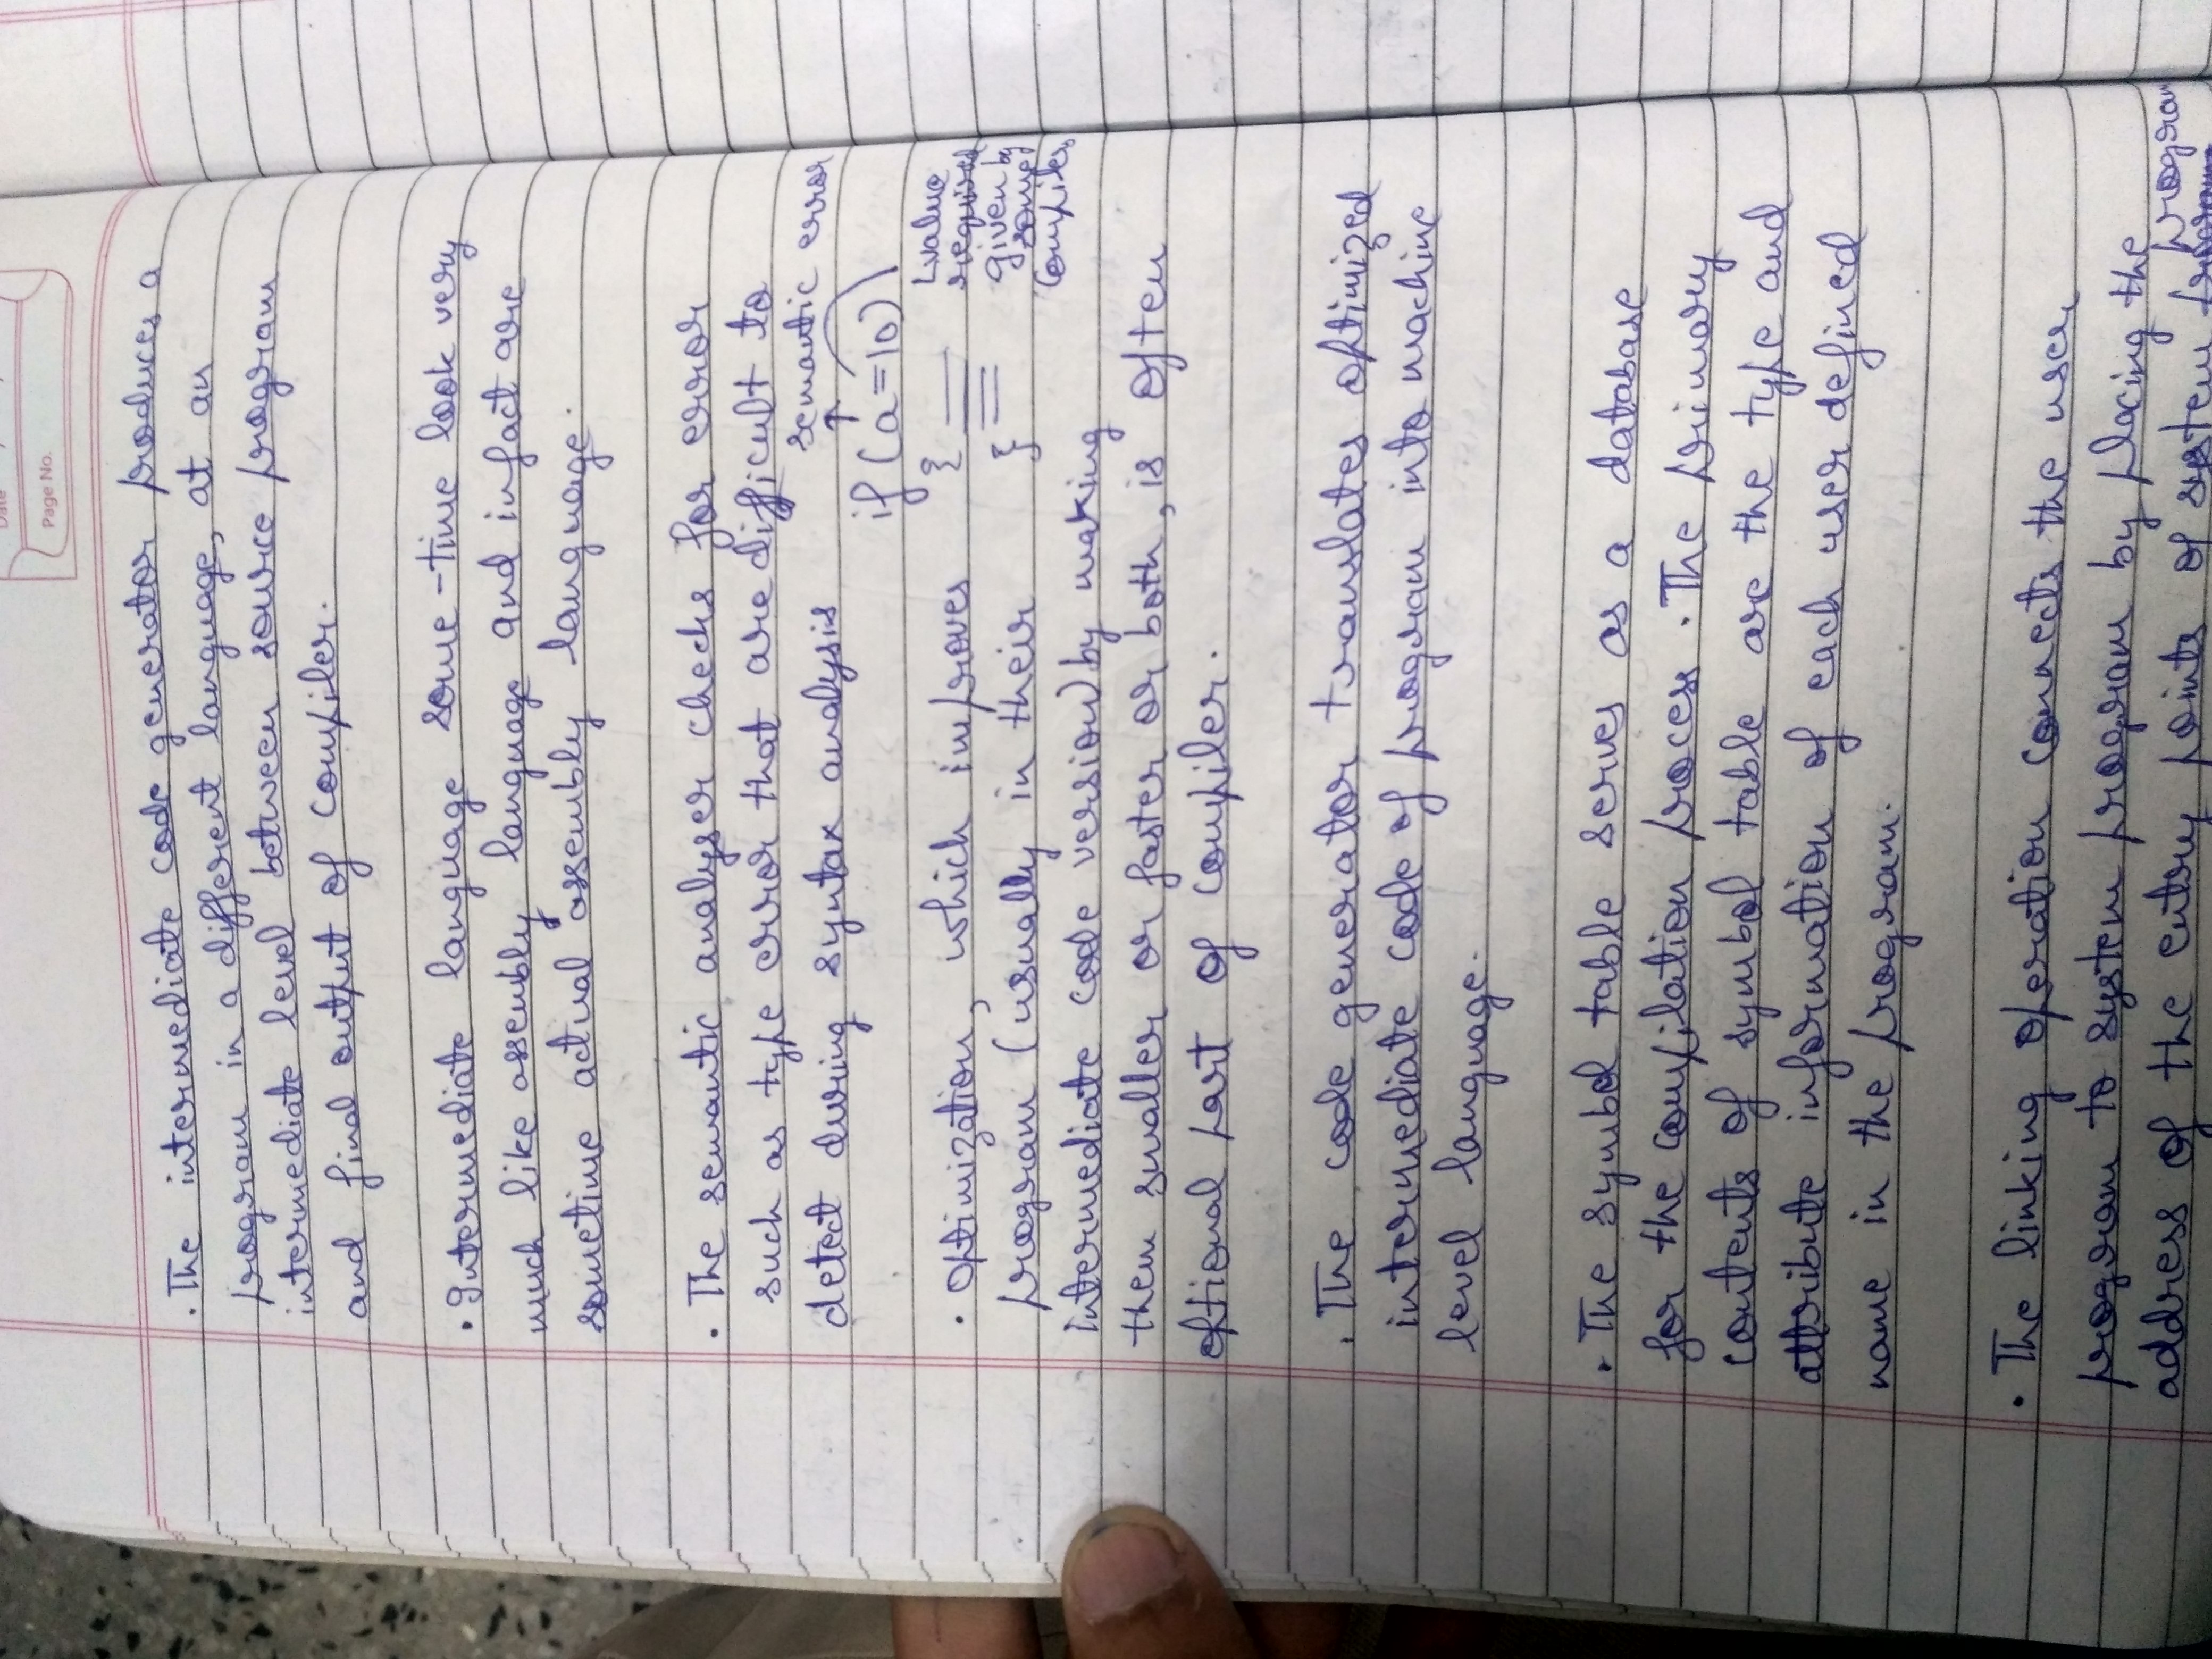 Date
Page No.
. The intermediate code generator produces a
program in a different language, at an
intermediate level between source program
and final output of compiler.
. Intermediate language some-time look very
much like assembly language and infact are
sometime actual assembly language.
. The semantic analyser checks for error
such as type error that are difficult to
detect during syntax analysis
semantic error
if (a=10)
{
}
Lvalue
required
given by
some
compiler
. Optimization, which improves
program (usually in their
intermediate code version) by making
them smaller or faster or both, is often
optional part of compiler.
. The code generator translates optimized
intermediate code of program into machine
level language.
. The symbol table serves as a database
for the compilation process. The primary
contents of symbol table are the type and
attribute information of each user defined
name in the program.
. The linking operation connects the user
program to system program by placing the
address of the entry points of system program